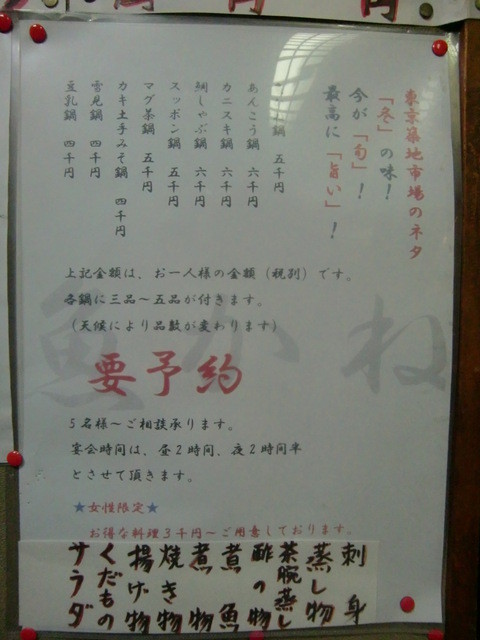 円 円 円
東京築地市場のネタ
「冬」の味！
今が「旬」！
最高に「旨い」！
鍋 五千円
あんこう鍋 六千円
カニスキ鍋 六千円
鯛しゃぶ鍋 六千円
スッポン鍋 五千円
マグ茶鍋 五千円
カキ土手みそ鍋 四千円
雪見鍋 四千円
豆乳鍋 四千円
上記金額は、お一人様の金額（税別）です。
各鍋に三品～五品が付きます。
（天候により品数が変わります）
魚かね
要予約
5名様～ご相談承ります。
宴会時間は、昼2時間、夜2時間半
とさせて頂きます。
★女性限定★
お得な料理3千円～ご用意しております。
刺身
蒸し物
茶碗蒸し
酢の物
煮魚
煮物
焼き物
揚げ物
くだもの
サラダ